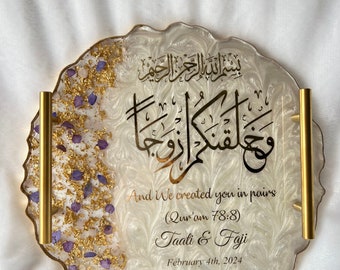 بسم الله الرحمن الرحيم
وخلقنكم ازوجا
And We created you in pairs
(Qur'an 78:8)
Taali & Faji
February 4th, 2024